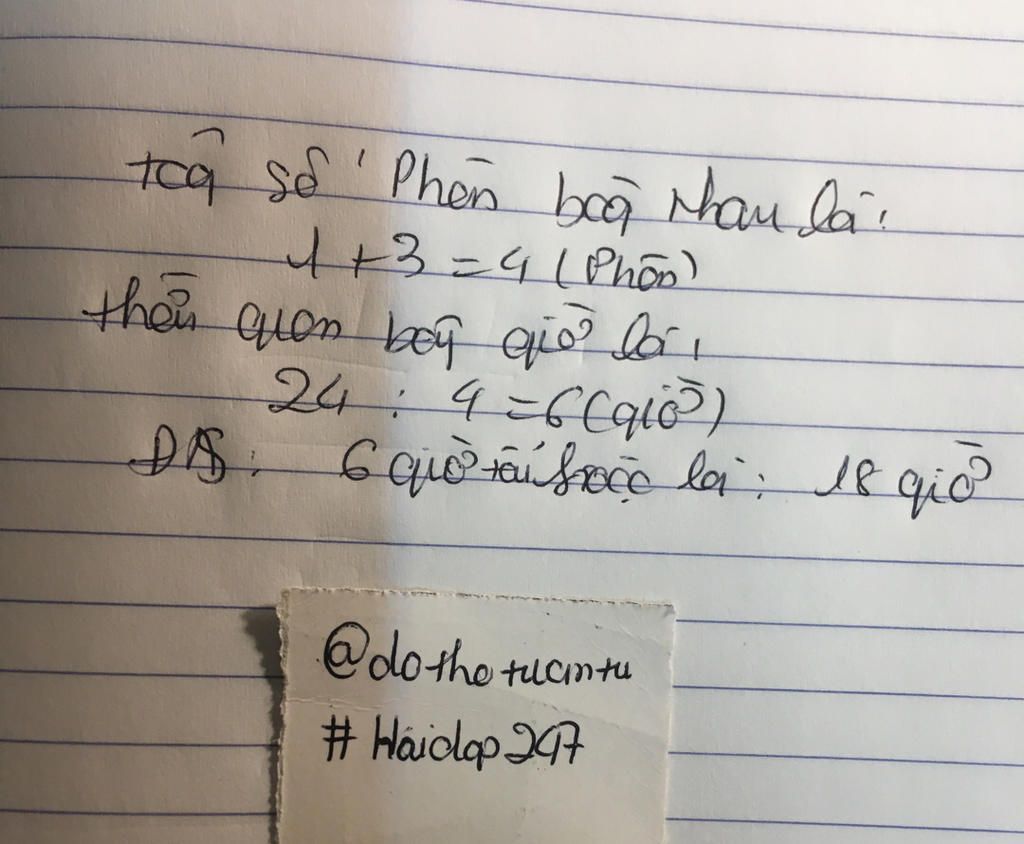 tổng số phần bằng nhau là:
1 + 3 = 4 (Phần)
thời quan bây giờ là:
24 : 4 = 6 (giờ)
ĐS: 6 giờ hoặc là: 18 giờ
@dothotuantu
#Hoidap247